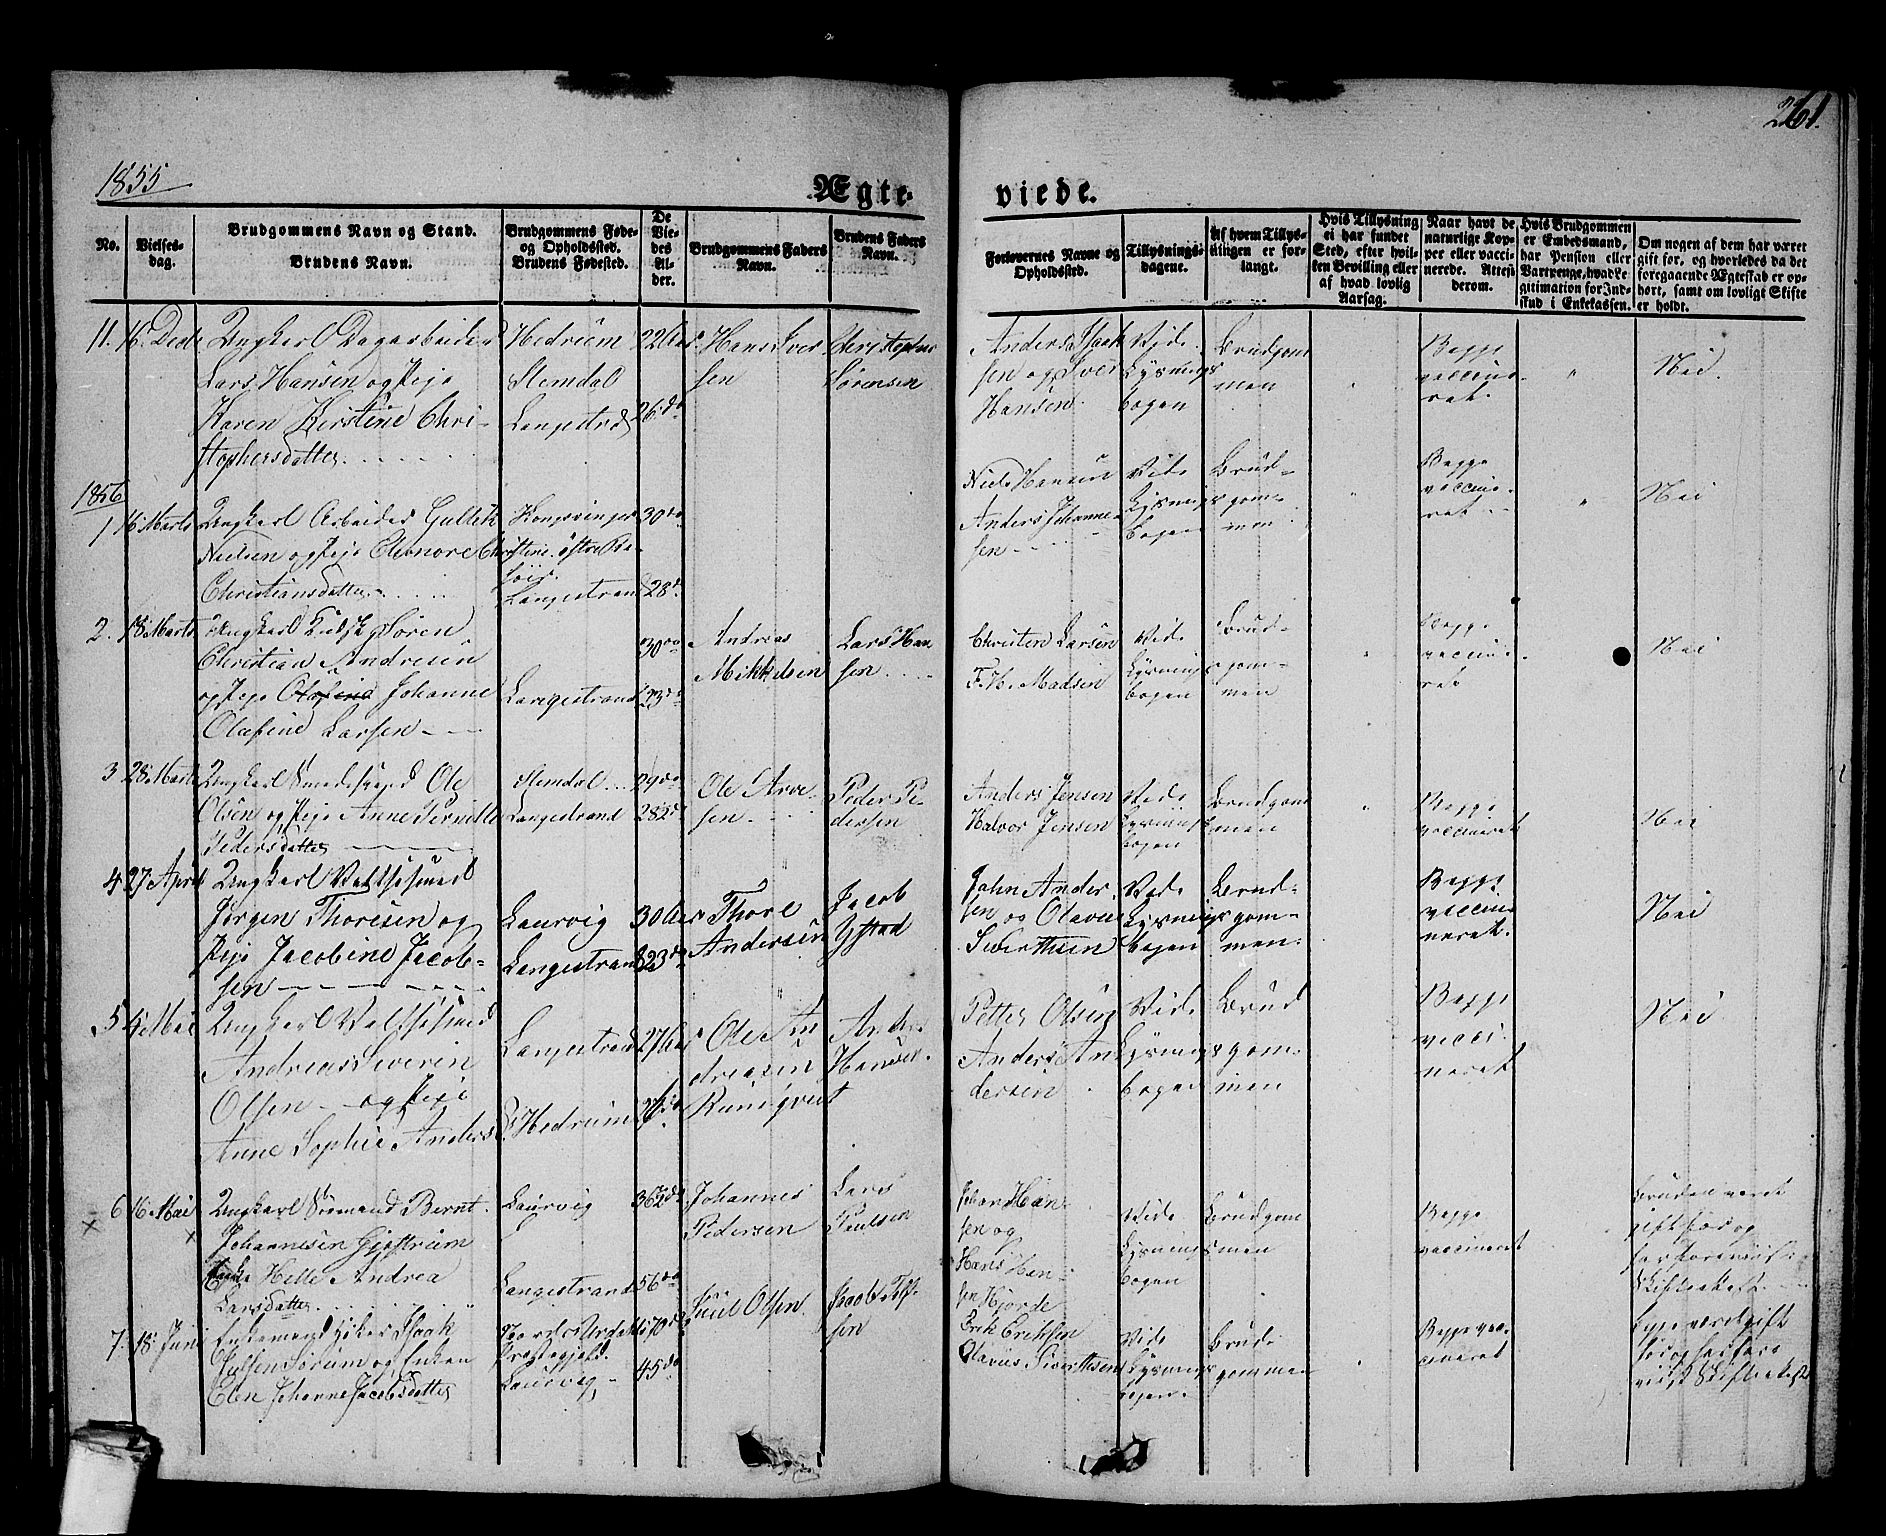 261.
1855
Ægte
viede.
No.
Vielses-
dag.
Brudgommens Navn og Stand.
Brudens Navn.
Brudgommens Føde-
og Opholdssted.
Brudens Fødested.
De
Vie-
des
Al-
der.
Brudgommens Faders
Navn.
Brudens Faders
Navn.
Forlovernes Navne og
Opholdssted.
Tillysnings-
dagene.
Af hvem Tillys-
ningen er for-
langt.
Hvis Tillysning
ei har fundet
Sted, efter hvil-
ken Bevilling eller
af hvad lovlig
Aarsag.
Naar havt de
naturlige Kop-
per eller vacci-
nerede. Attest
derom.
Hvis Brudgommen
er Embedsmand,
har Pension eller
Vartpenge, hvad Le-
gitimation for Ind-
skud i Enkekassen.
Om nogen af dem har været
gift før, og hvorledes da det
foregaaende Ægteskab er op-
hørt, samt om lovligt Skifte
er holdt.
11. 16 Decbr
Ungkarl Dagarbeider
Lars Hansen og Pige
Karen Kirstine Chri-
stophersdatter
Hedrum
Slemdal
Langestrd
22 Aar
26 do
Hans Iver
sen
Christopher
Sørensen
Anders Isaak
sen og Iver
Hansen
Vide
Lysnings
bogen
Brudgom
men
Begge
vaccine-
ret.
Nei.
1856
1 16 Marts
Ungkarl Arbeider Gulbik
Nielsen og Pige Eleonore Christine
Christiansdatter
Kongsvinger
Langestrand
30 do
28 do
Niels Hansen
Anders Johanne
sen
Vide
Lysnings
bogen
Brud-
gom-
men
Begge
vaccine-
ret
Nei
2. 18 Marts
Ungkarl Søren
Christian Andresen
og Pige Johanne
Olafine Larsen
Langestrand
30 do
23 do
Andreas
Mikkelsen
Lars Han
sen
Christen Larsen
F. H. Madsen
Vide
Lysnings
bogen
Brud-
gom-
men
Begge
vaccine-
ret
Nei
3 28 Marts
Ungkarl Smedsvend Ole
Olsen og Pige Anne Pernille
Pedersdatter
Slemdal
Langestrand
29 do
28 do
Ole Arve
sen
Peder Pe-
dersen
Anders Jensen
Halvor Jensen
Vide
Lysnings
bogen
Brudgom
men
Begge
vaccineret
Nei
4 27 April
Ungkarl Valsesmed
Jørgen Thoresen og
Pige Jacobine Jacob-
sen
Laurvig
Langestrand
30 Aar
23 do
Thore
Andersen
Jacob
Ystad
John Ander
sen og Olavus
Siverthsen
Vide
Lysnings
bogen
Brud-
gom-
men.
Begge
vaccine
neret.
Nei
5 5 Mai
Ungkarl Valsesmed
Andreas Severin
Olsen og Pige
Anne Sophie Anders
Langestrand
Hedrum
27 Aar
Ole An
dreasen
Rundqvist
Anders
Hansen.
Petter Olsen
Anders An
dersen
Vide
Lysnings
bogen
Brud
gom-
men
Begge
vacci-
neret
Nei
6 16 Mai
Ungkarl Sømand Bernt
Johannesen Gjestrum
Enke Helle Andrea
Larsdatter
Laurvig
Langestrand
56 do
Johannes
Pedersen
Lars
Poulsen
Johan Han
sen og
Hans Han-
sen Hjorde
Vide
Lysnings
bogen
Brudgom
men
Begge
vaccineret
Bruden været
gift før og
Skifteattest
7. 18 Juni
Enkemand Isaak
Julsen Sørum og Enken
Elen Johanne Jacobsdatter
Præstegjeld.
Laurvig
70 do
45 do
Juul Olsen
Jacob
sen
Erik Eriksen
Olavus Siverthsen
Vide
Lysnings
bogen.
Brud
gommen
Begge vac-
cineret
Begge været gift
før og
Skifteattest